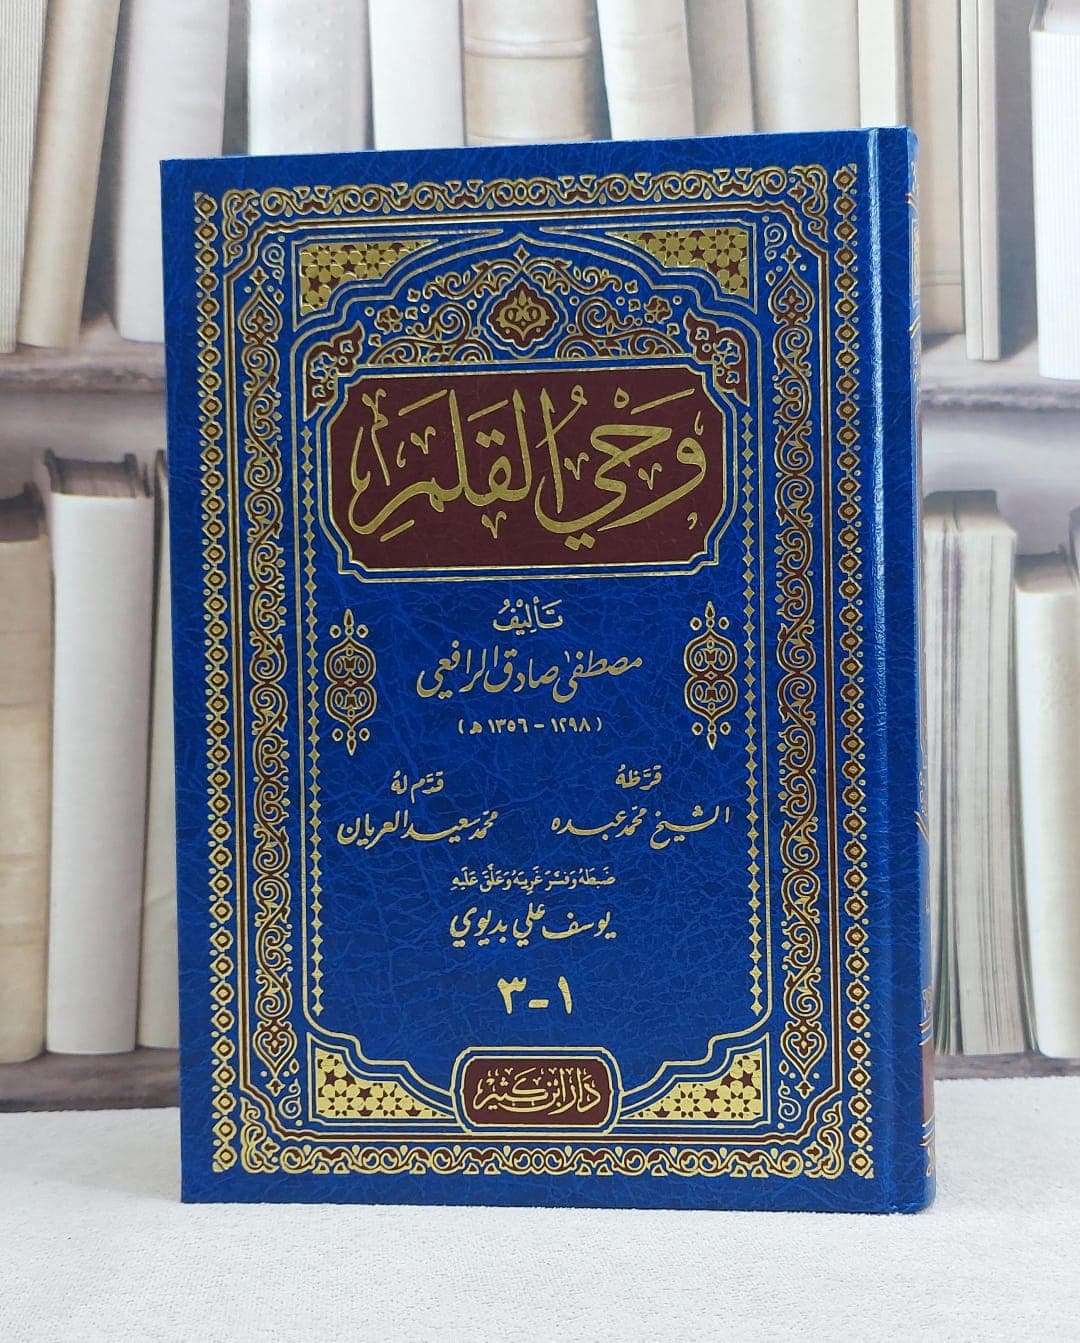 وَحْيُ القَلَمِ
تَأليْفُ
مصطفى صادق الرافعي
( ١٢٩٨ - ١٣٥٦ هـ )
قرَّظهُ
الشيخ محمّد عبده
قدَّم لهُ
محمّد سعيد العريان
ضَبطَهُ وَفسَّرَ غَريبَهُ وَعَلَّقَ عَلَيهِ
يوسف علي بديوي
١-٣
دَارُ ابْنِ كَثِيْرٍ